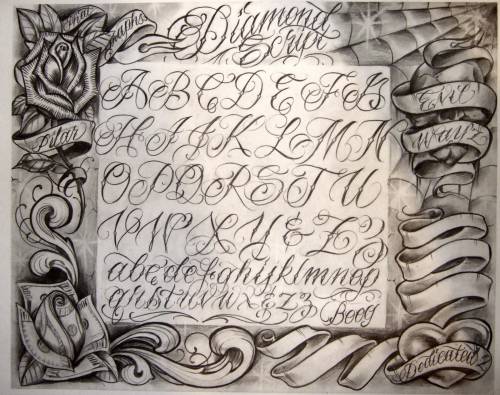 Diamond
Script
A B C D E F G
H I J K L M N
O P Q R S T U
V W X Y & Z
abcdefghijklmnop
qrstuvwxyz
Boog
Pilar
Evil
Wayz
Dedicated 2